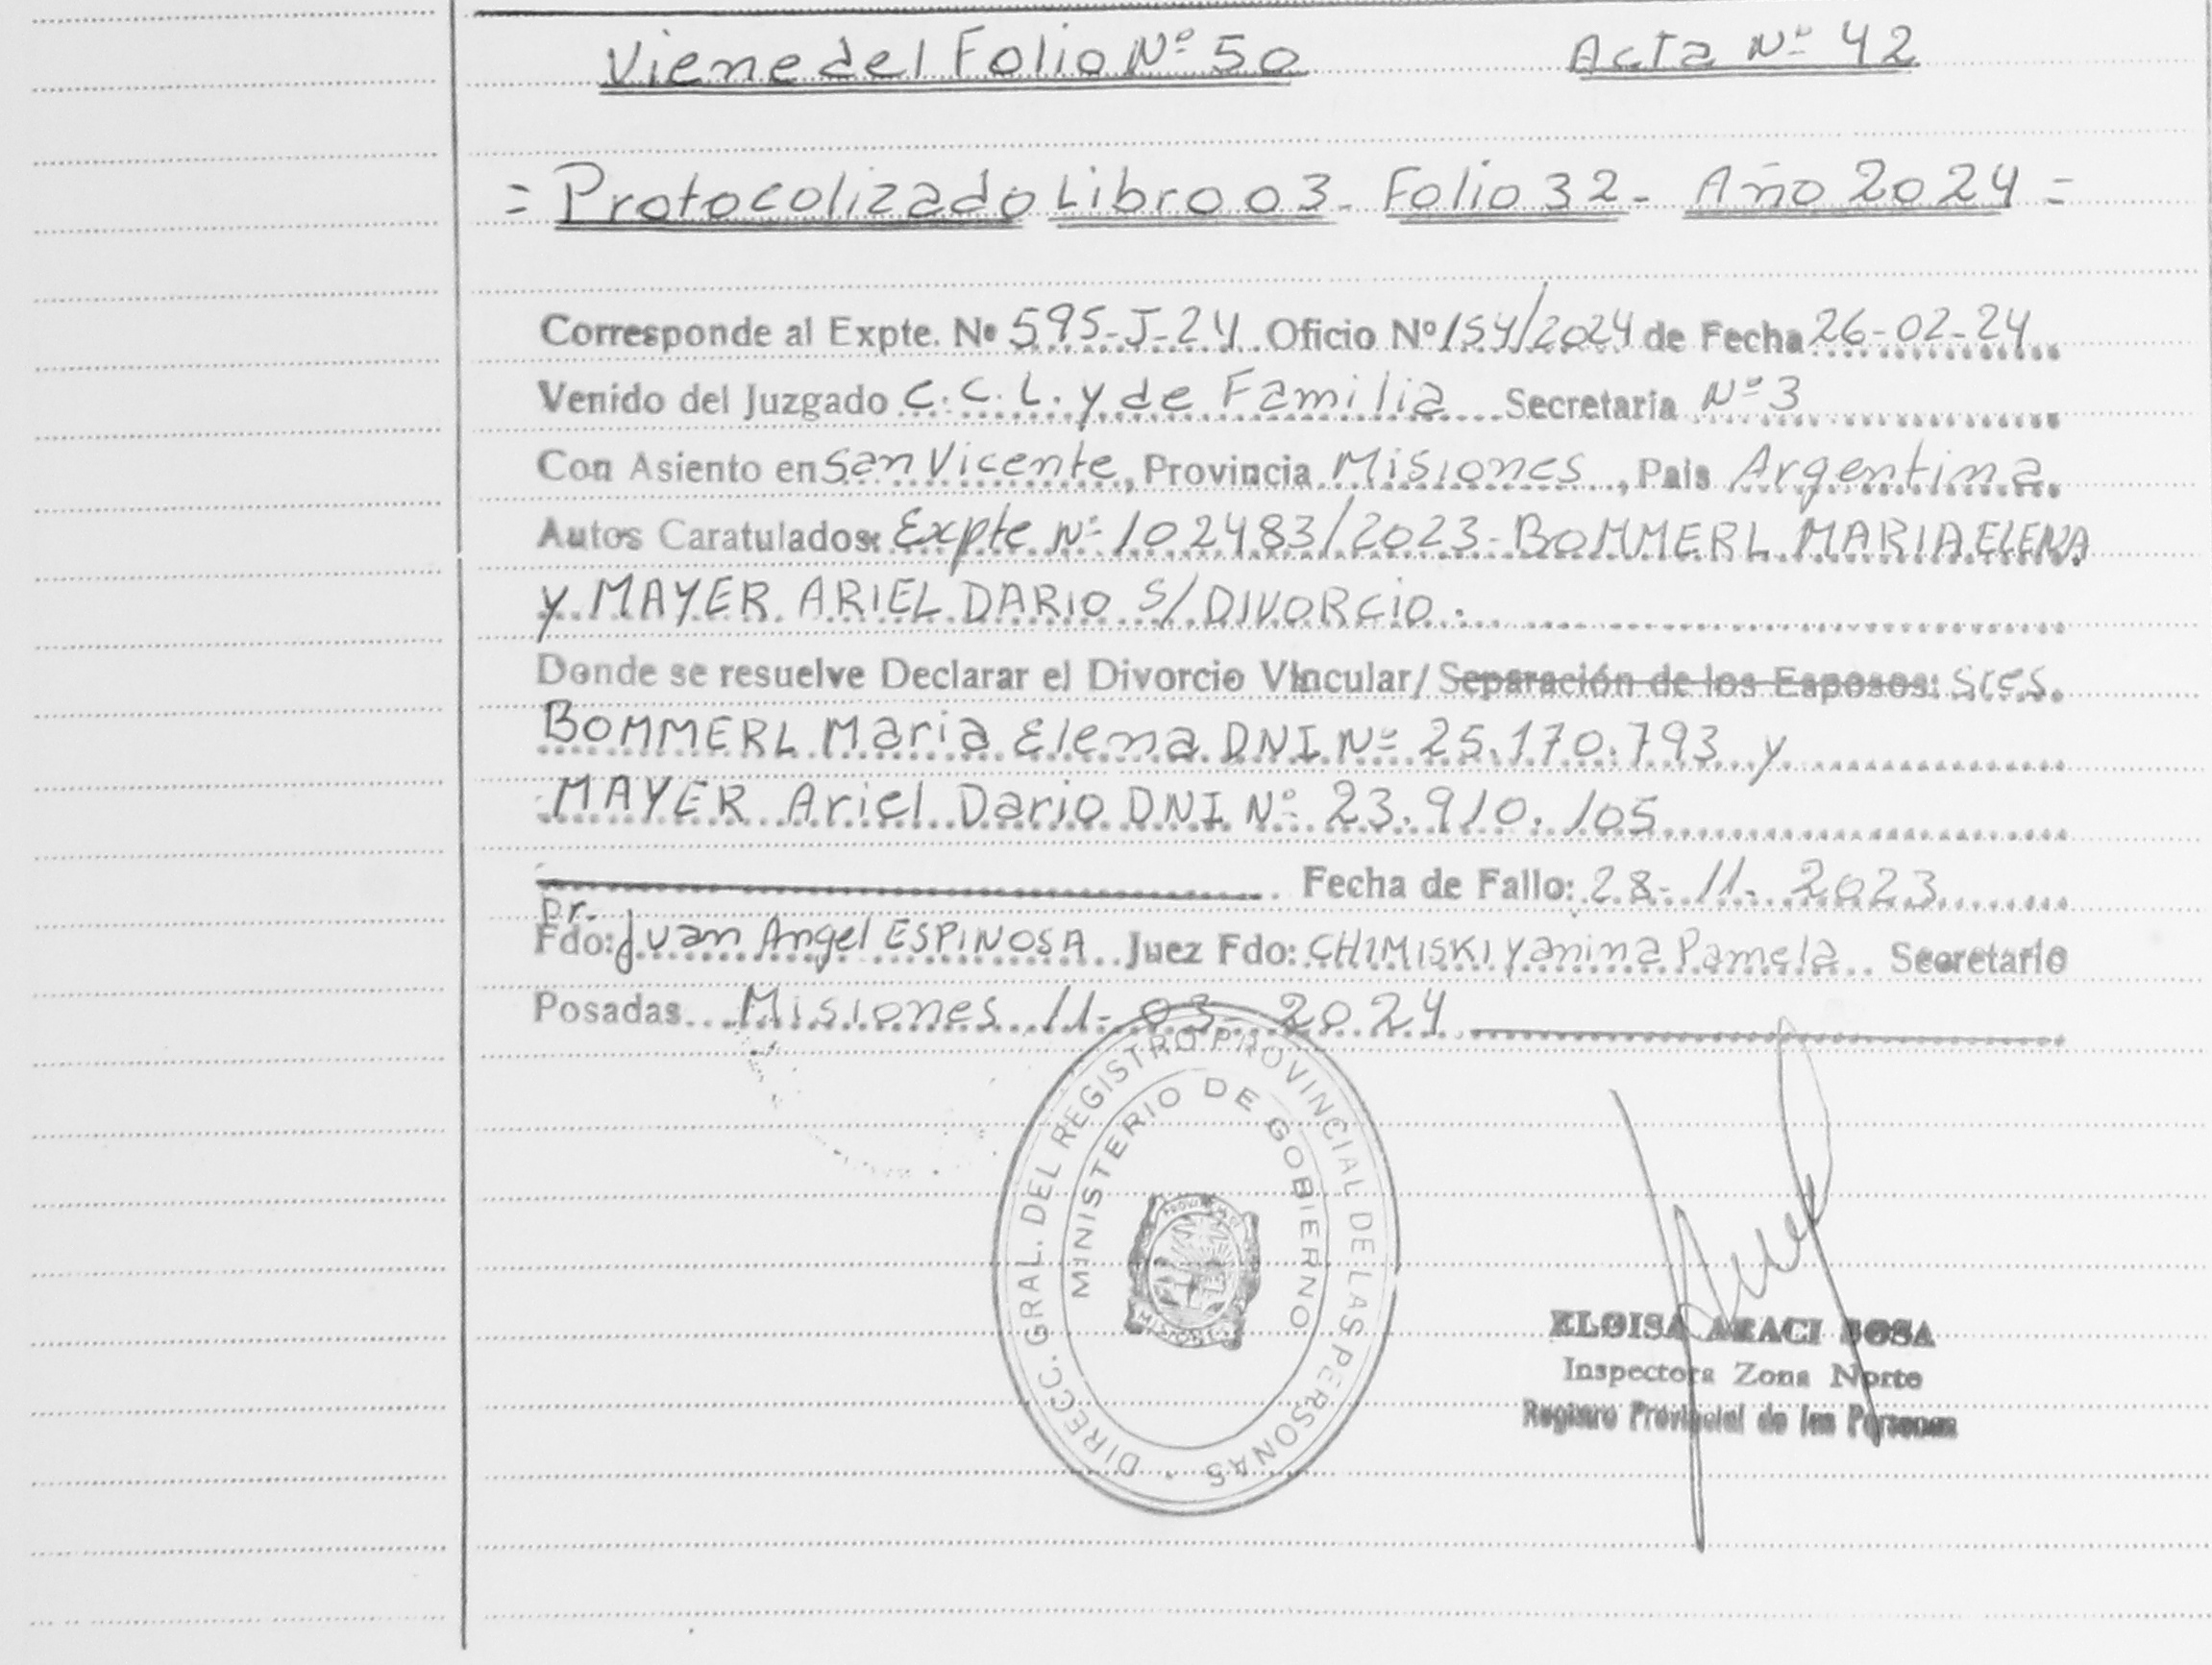 Viene del Folio Nº 50 Acta Nº 42
= Protocolizado Libro 03 - Folio 32 - Año 2024 =
Corresponde al Expte. Nº 595-J-24 Oficio Nº 154/2024 de Fecha 26-02-24
Venido del Juzgado C. C. L. y de Familia Secretaria Nº 3
Con Asiento en San Vicente, Provincia Misiones, Pais Argentina.
Autos Caratulados: Expte Nº 102483/2023 - BOMMERL MARIA ELENA
y MAYER ARIEL DARIO S/ DIVORCIO.
Donde se resuelve Declarar el Divorcio Vincular/ Separación de los Esposos: Sres.
BOMMERL Maria Elena DNI Nº 25.170.793 y
MAYER Ariel Dario DNI Nº 23.910.105
Fecha de Fallo: 28-11-2023
Dr.
Fdo: Juan Angel ESPINOSA Juez Fdo: CHIMISKI Yanina Pamela Secretario
Posadas Misiones 11-03-2024
DIRECC. GRAL. DEL REGISTRO PROVINCIAL DE LAS PERSONAS
MINISTERIO DE GOBIERNO
MISIONES
ELOISA ARACI SOSA
Inspectora Zona Norte
Registro Provincial de las Personas